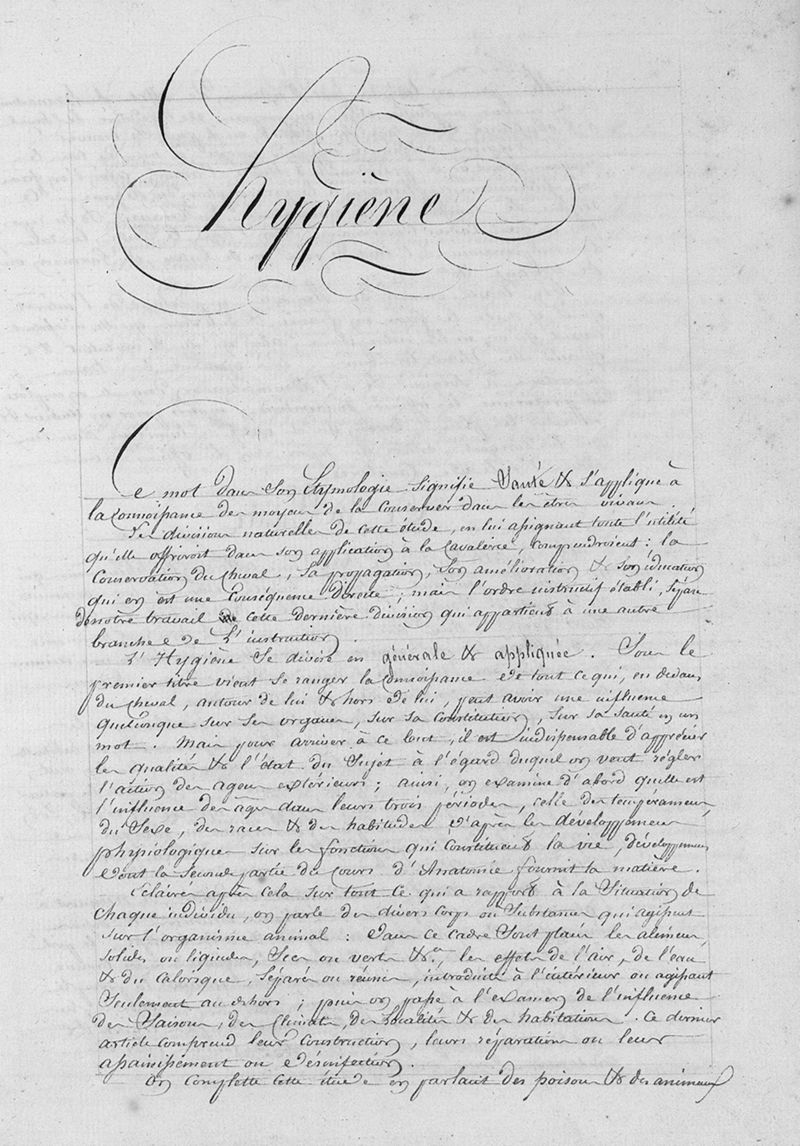 hygiène
Ce mot dans son Etymologie signifie Santé & s'applique à
la connoissance des moyens de la conserver dans les êtres vivans
Les divisions naturelles de cette étude, en lui assignant toute l'utilité
qu'elle offriroit dans son application à la Cavalerie, comprendroient : la
Conservation du cheval, sa propagation, son amélioration & son éducation
qui en est une conséquence directe ; mais l'ordre instructif établi, sépare
de notre travail cette dernière division qui appartient à une autre
branche de l'instruction.
L'Hygiène se divise en générale & appliquée. Sous le
premier titre vient se ranger la connoissance de tout ce qui, en dedans
du cheval, autour de lui & hors de lui, peut avoir une influence
quelconque sur ses organes, sur sa constitution, sur sa santé en un
mot. Mais pour arriver à ce but, il est indispensable d'apprécier
les qualités & l'état du sujet à l'égard duquel on veut régler
l'action des agens extérieurs ; ainsi, on examine d'abord quelle est
l'influence des âges dans leurs trois périodes, celle des tempéramens,
du sexe, des races & des habitudes d'après les développemens
physiologiques sur les fonctions qui constituent la vie, développemens
dont la seconde partie du cours d'Anatomie fournit la matière.
Éclairé après cela sur tout ce qui a rapport à la situation de
chaque individu, on parle des divers corps ou substances qui agissent
sur l'organisme animal : dans ce cadre sont placés les alimens
solides ou liquides, secs ou verts &a, les effets de l'air, de l'eau
& du calorique, séparés ou réunis, introduits à l'intérieur ou agissant
seulement au dehors ; puis on passe à l'examen de l'influence
des saisons, des climats, des localités & des habitations. Ce dernier
article comprend leur construction, leurs réparations ou leur
assainissement ou désinfection.
On complette cette étude en parlant des poisons & des animaux